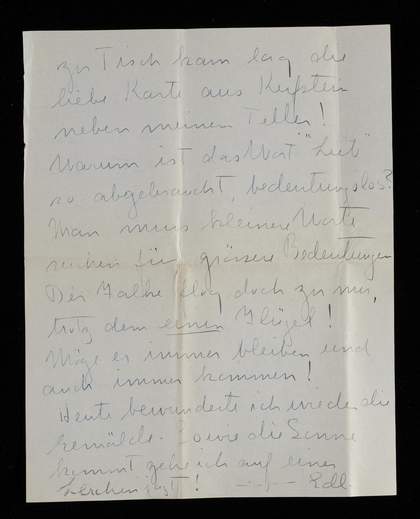 zu Tisch kam lag die
liebe Karte aus Kufstein
neben meinem Teller!
Warum ist das Wort "Lieb"
so abgebraucht, bedeutungslos?
Man muss kleinere Worte
suchen für grössere Bedeutungen
Der Falke flog doch zu mir,
trotz dem einen Flügel!
Möge er immer bleiben und
auch immer kommen!
Heute bewunderte ich wieder die
Gemälde. Sowie die Sonne
kommt gehe ich auf einen